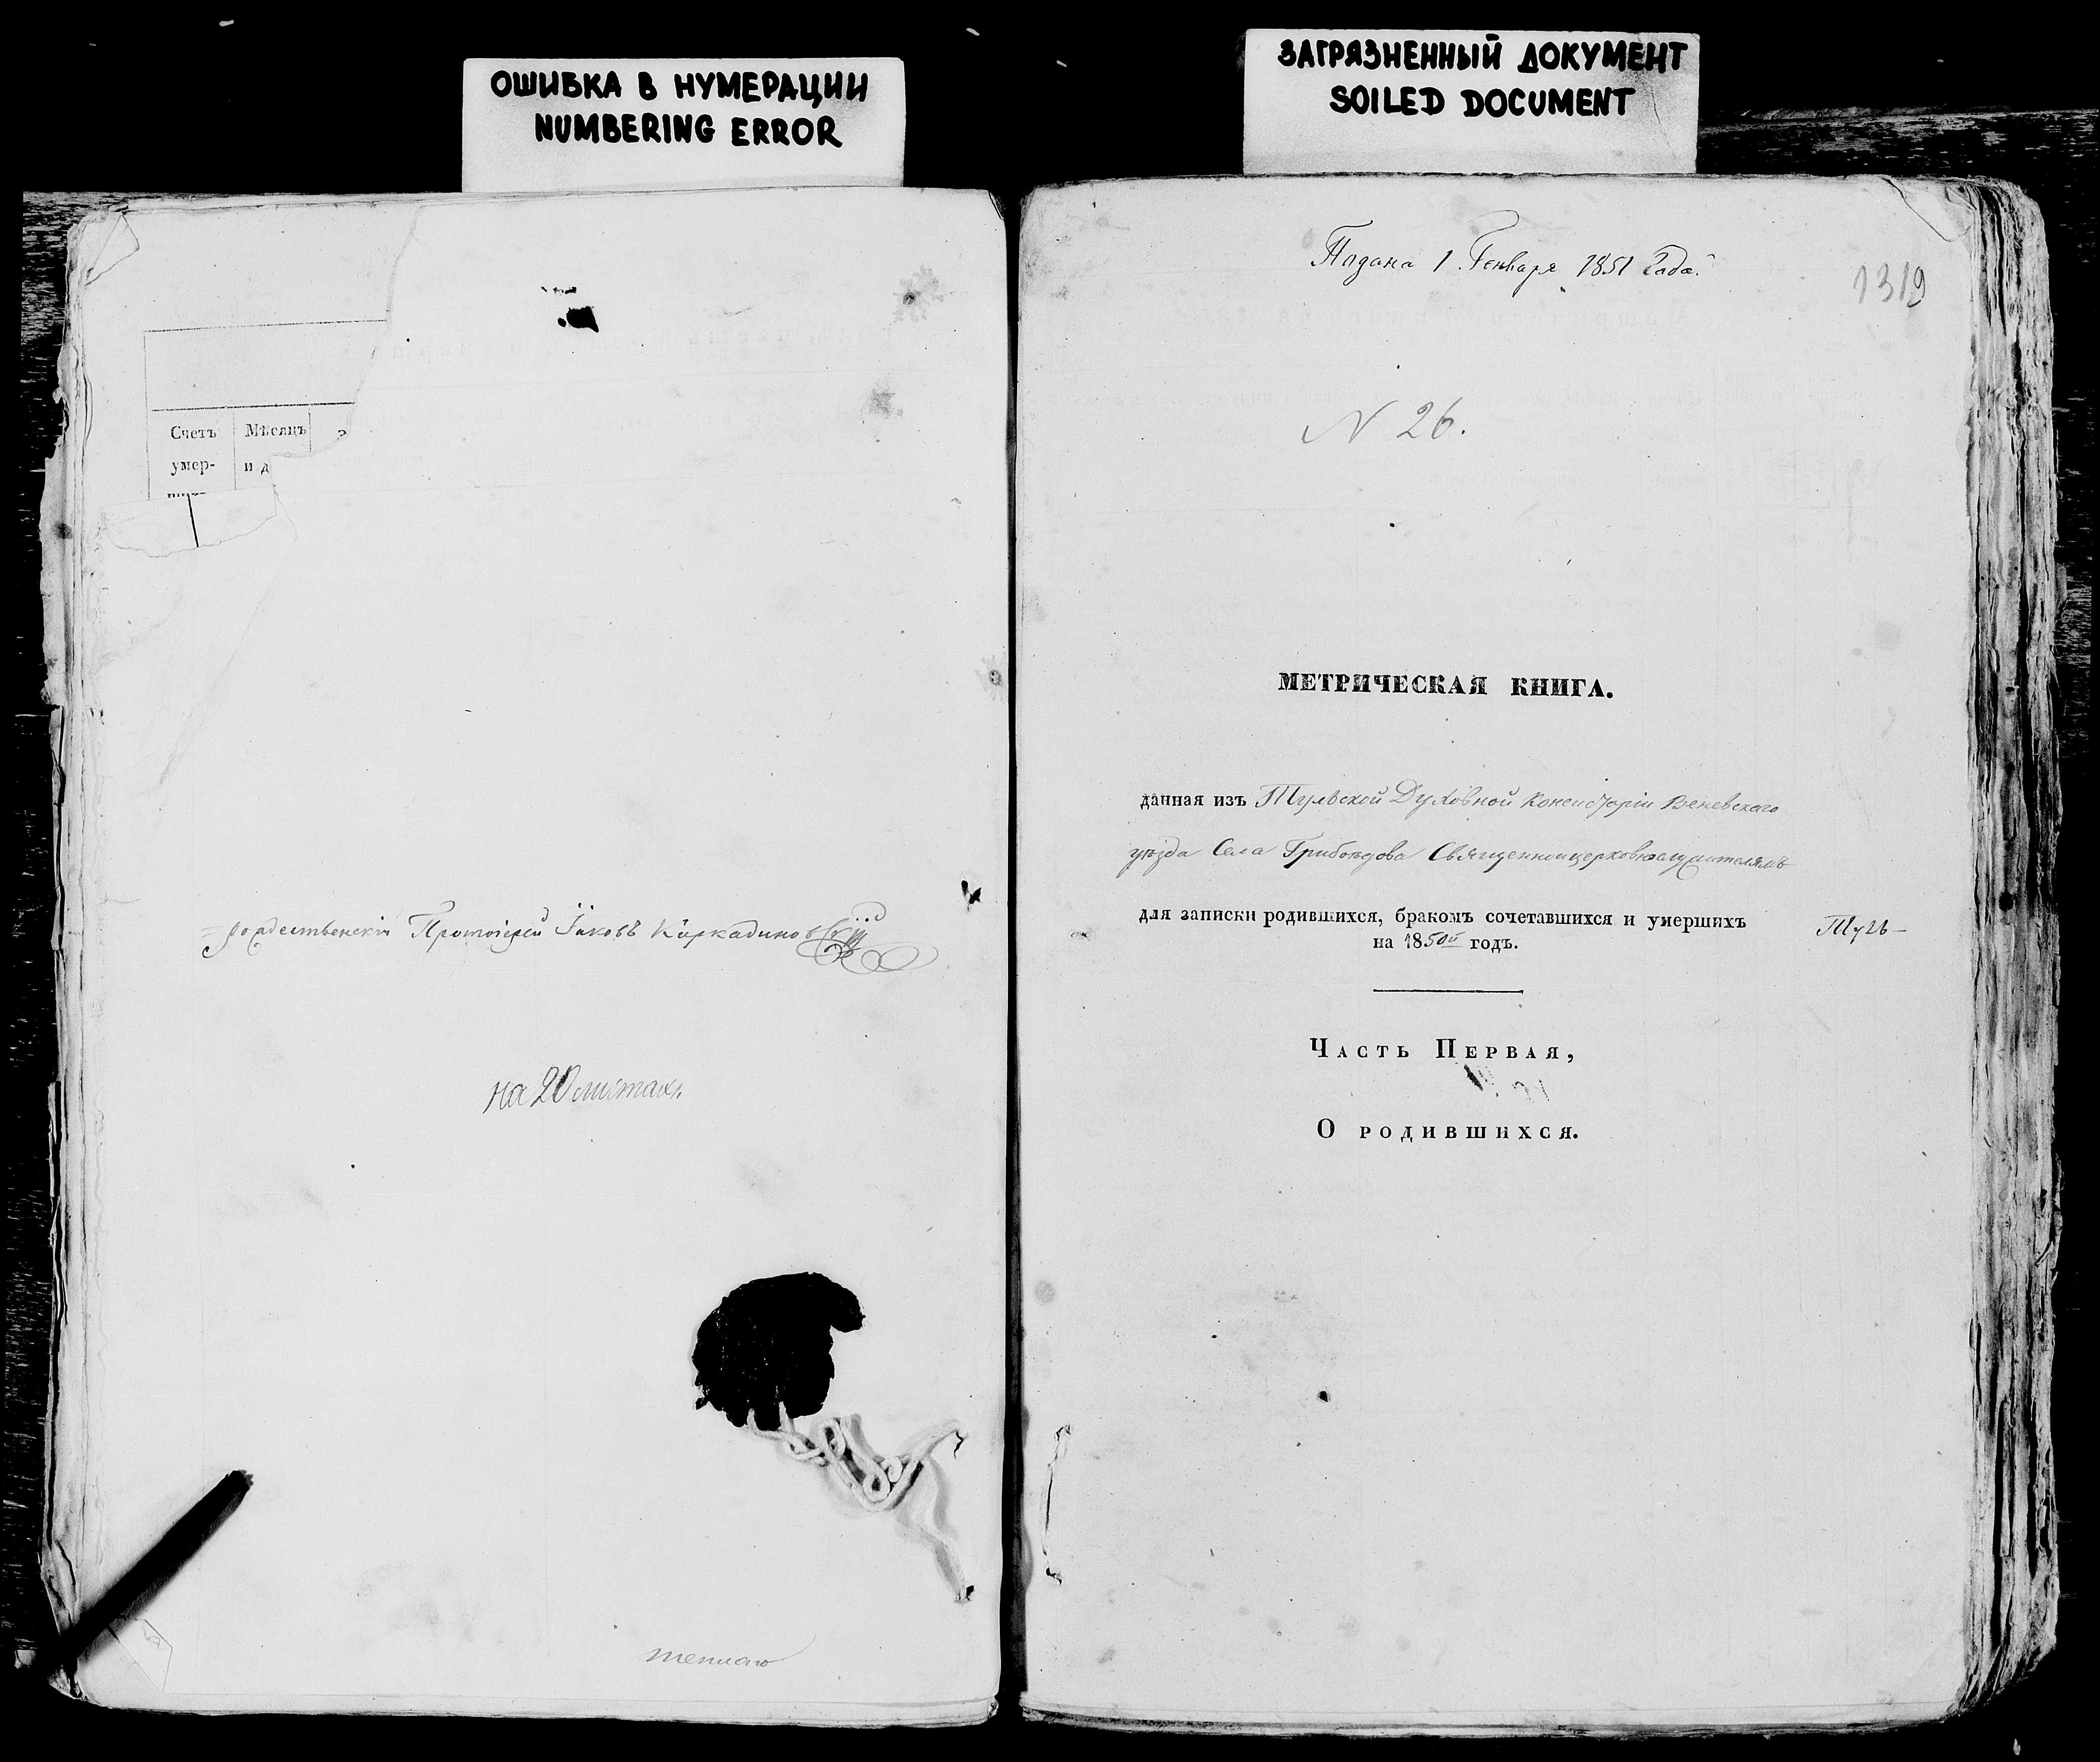 ОШИБКА В НУМЕРАЦИИ
NUMBERING ERROR
Счетъ
умер-
Мѣсяцъ
и д
Протоіерей Іаковъ
на 20 листах.
ЗАГРЯЗНЕННЫЙ ДОКУМЕНТ
SOILED DOCUMENT
Подана 1. Генваря 1851 Года.
1319
N 26.
МЕТРИЧЕСКАЯ КНИГА.
данная изъ Тульской Духовной Консисторіи Веневскаго
уѣзда Села Грибоѣдова Священноцерковнослужителямъ
для записки родившихся, бракомъ сочетавшихся и умершихъ
на 1850й годъ.
Туль-
Часть Первая,
О родившихся.